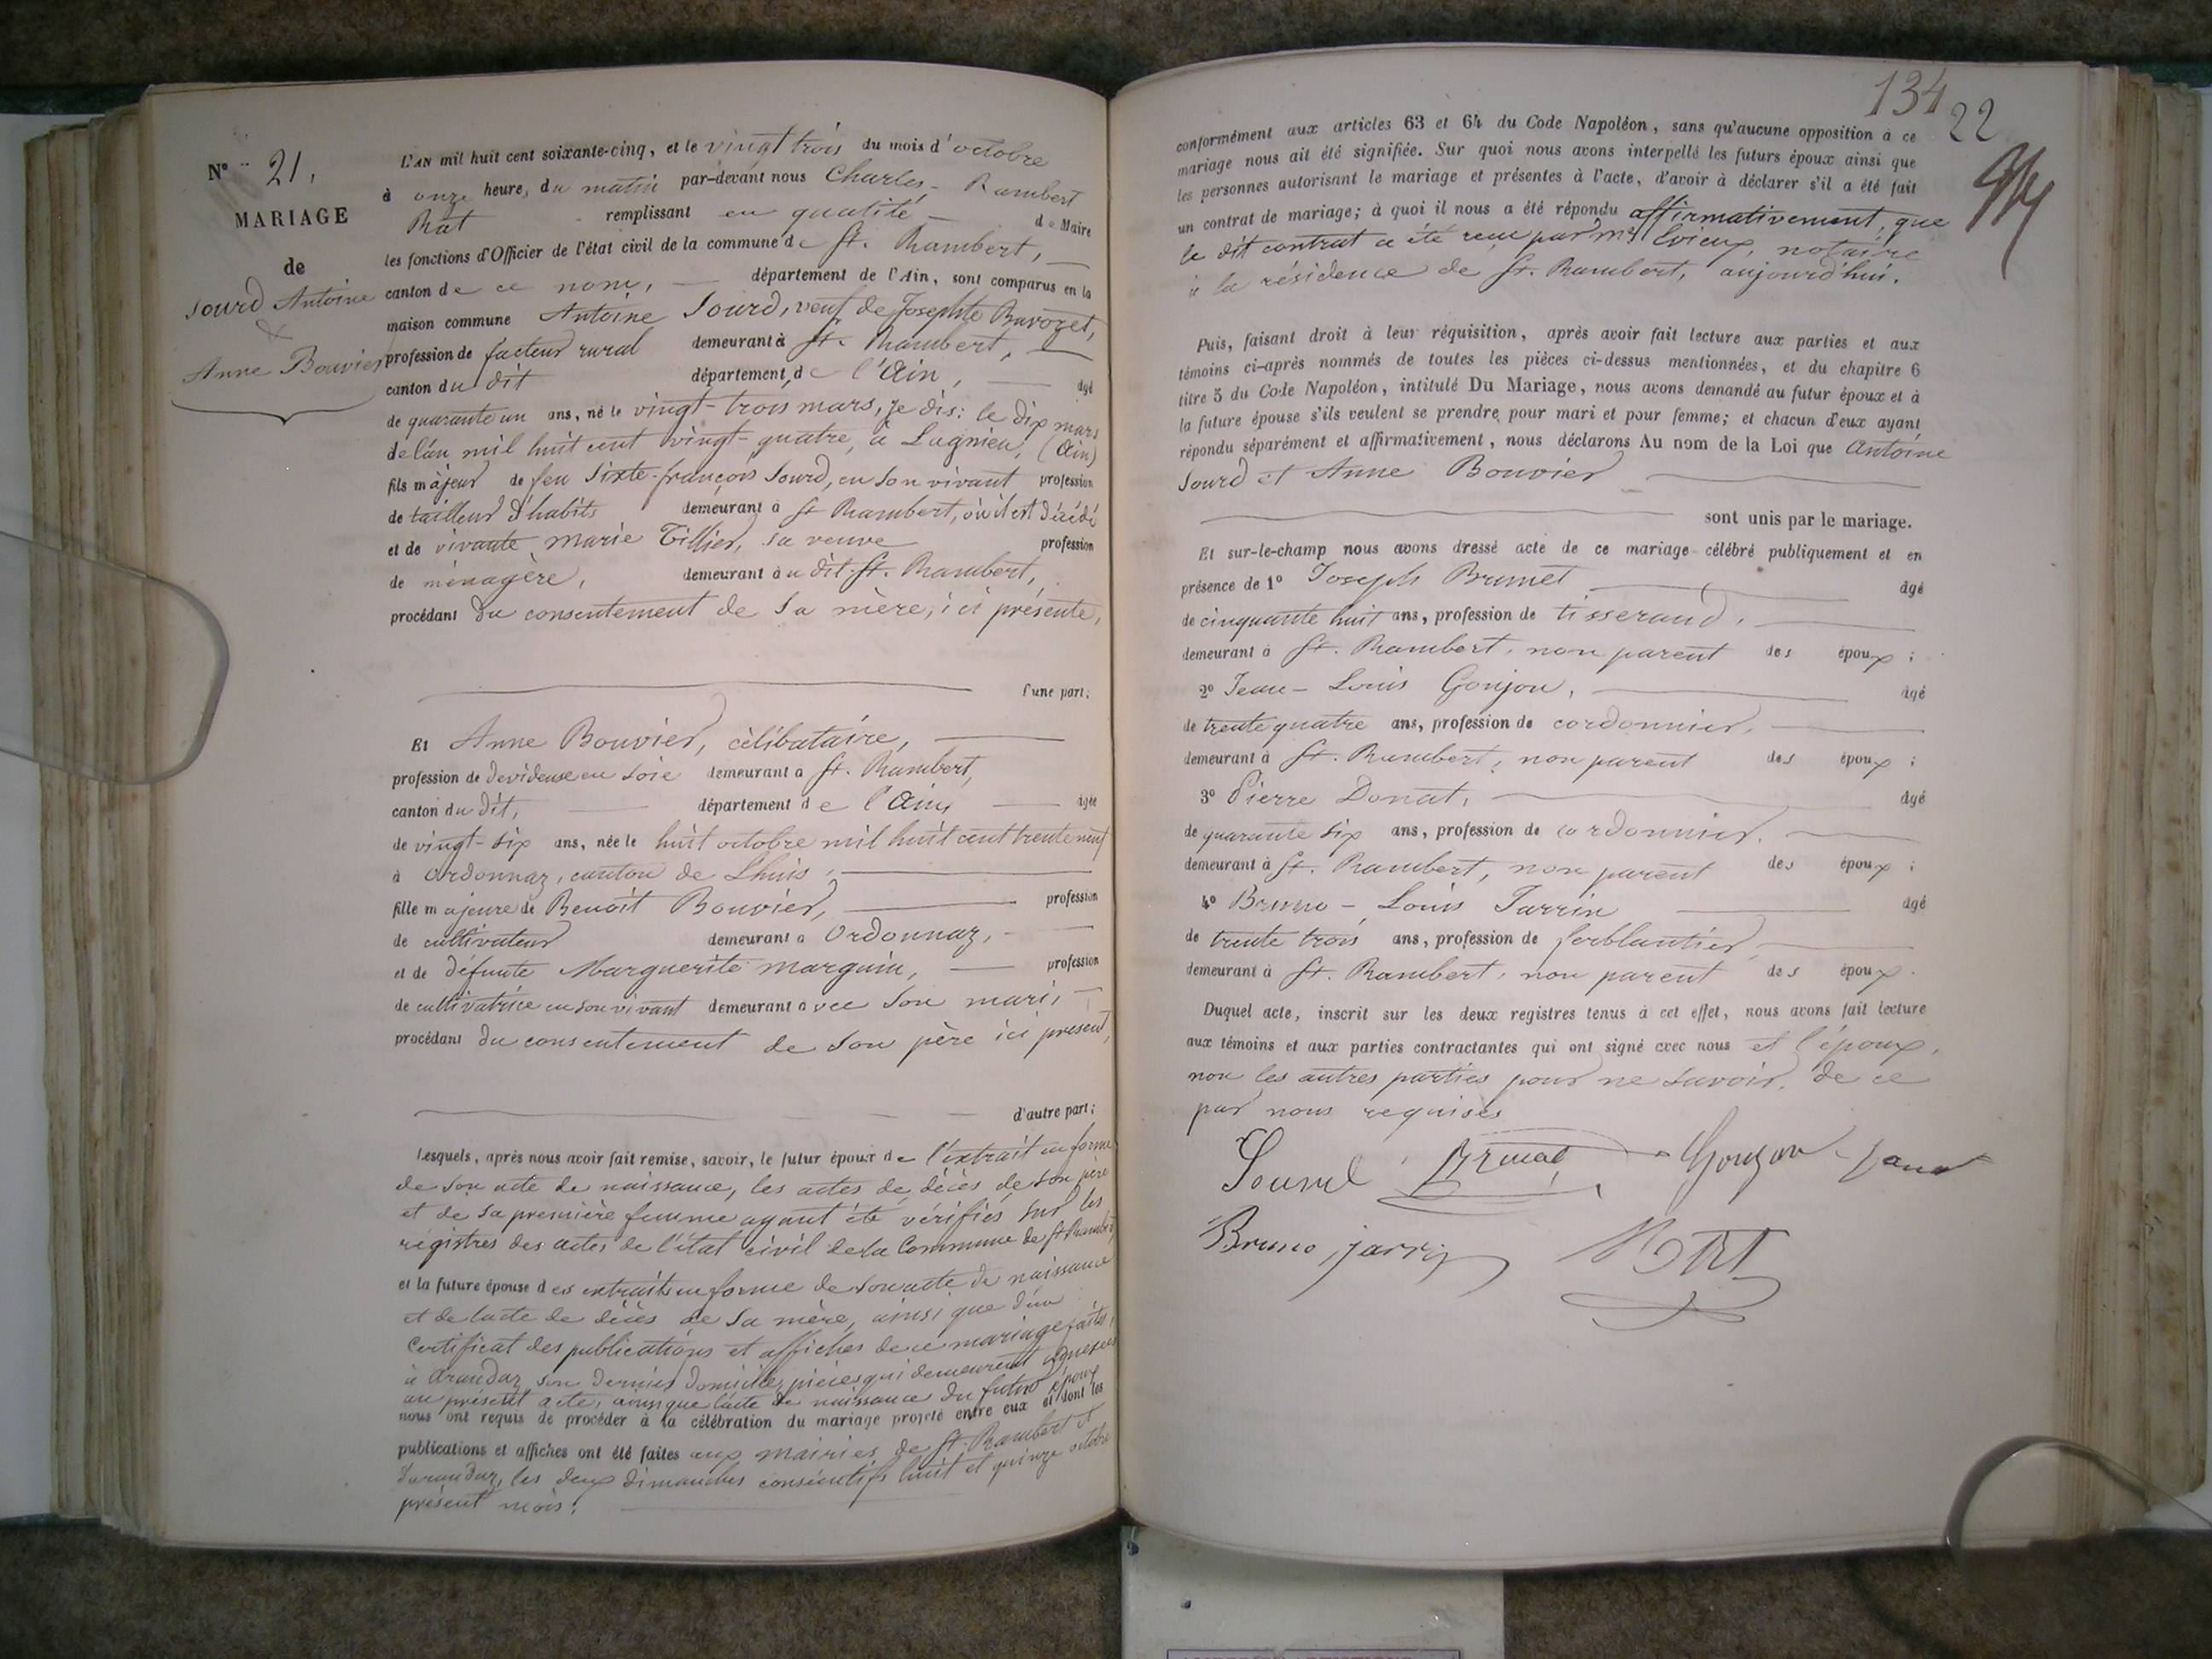 N° 21,
MARIAGE
de
Sourd Antoine
&
Anne Bouvier
L'AN mil huit cent soixante-cinq, et le vingt trois du mois d'octobre
à onze heure, du matin par-devant nous Charles-Rambert
Rat remplissant en qualité de Maire
les fonctions d'Officier de l'état civil de la commune de St. Rambert,
canton de ce nom, département de l'Ain, sont comparus en la
maison commune Antoine Sourd, veuf de Josephte Bavozet,
profession de facteur rural demeurant à St. Rambert,
canton du dit département de l'Ain, âgé
de quarante un ans, né le vingt-trois mars, je dis: le dix mars
de l'an mil huit cent vingt-quatre, à Lagnieu, (Ain)
fils majeur de feu Sixte-françois Sourd, en son vivant profession
de tailleur d'habits demeurant à St Rambert, où il est décédé
et de vivante Marie Tillier, sa veuve profession
de ménagère, demeurant au dit St. Rambert,
procédant du consentement de sa mère, ici présente,
l'une part;
Et Anne Bouvier, célibataire,
profession de devideuse en soie demeurant à St. Rambert,
canton du dit, département de l'Ain âgée
de vingt-six ans, née le huit octobre mil huit cent trente neuf
à Ordonnaz, canton de Lhuis,
fille majeure de Benoit Bouvier, profession
de cultivateur demeurant à Ordonnaz,
et de défunte Marguerite Marguin, profession
de cultivatrice en son vivant demeurant avec son mari,
procédant du consentement de son père ici présent,
d'autre part;
Lesquels, après nous avoir fait remise, savoir, le futur époux de l'extrait en forme
de son acte de naissance, les actes de décès de son père
et de sa première femme ayant été vérifiés sur les
registres des actes de l'état civil de la Commune de St Rambert,
et la future épouse des extraits en forme de son acte de naissance
et de l'acte de décès de sa mère, ainsi que d'un
certificat des publications et affiches de ce mariage faites,
à Arandaz son dernier domicile, pièces qui demeurent annexées
au présent acte, ainsi que l'acte de naissance du futur époux
nous ont requis de procéder à la célébration du mariage projeté entre eux et dont les
publications et affiches ont été faites aux mairies de St. Rambert et
d'arandaz, les deux dimanches consécutifs huit et quinze octobre
présent mois.
134
22
conformément aux articles 63 et 64 du Code Napoléon, sans qu'aucune opposition à ce
mariage nous ait été signifiée. Sur quoi nous avons interpellé les futurs époux ainsi que
les personnes autorisant le mariage et présentes à l'acte, d'avoir à déclarer s'il a été fait
un contrat de mariage; à quoi il nous a été répondu affirmativement, que
le dit contrat a été reçu par Me Evieux, notaire
à la résidence de St. Rambert, aujourd'hui.
Puis, faisant droit à leur réquisition, après avoir fait lecture aux parties et aux
témoins ci-après nommés de toutes les pièces ci-dessus mentionnées, et du chapitre 6
titre 5 du Code Napoléon, intitulé Du Mariage, nous avons demandé au futur époux et à
la future épouse s'ils veulent se prendre pour mari et pour femme; et chacun d'eux ayant
répondu séparément et affirmativement, nous déclarons Au nom de la Loi que Antoine
Sourd et Anne Bouvier
sont unis par le mariage.
Et sur-le-champ nous avons dressé acte de ce mariage célébré publiquement et en
présence de 1° Joseph Brunet âgé
de cinquante huit ans, profession de tisserand,
demeurant à St. Rambert, non parent des époux;
2° Jean-Louis Goujon, âgé
de trente quatre ans, profession de cordonnier,
demeurant à St. Rambert, non parent des époux;
3° Pierre Donat, âgé
de quarante six ans, profession de cordonnier.
demeurant à St. Rambert, non parent des époux;
4° Bruno-Louis Jarrin âgé
de trente trois ans, profession de ferblantier
demeurant à St. Rambert, non parent des époux.
Duquel acte, inscrit sur les deux registres tenus à cet effet, nous avons fait lecture
aux témoins et aux parties contractantes qui ont signé avec nous et l'époux,
non les autres parties pour ne savoir, de ce
par nous requises
Sourd Brunet Goujon
Bruno jarrin